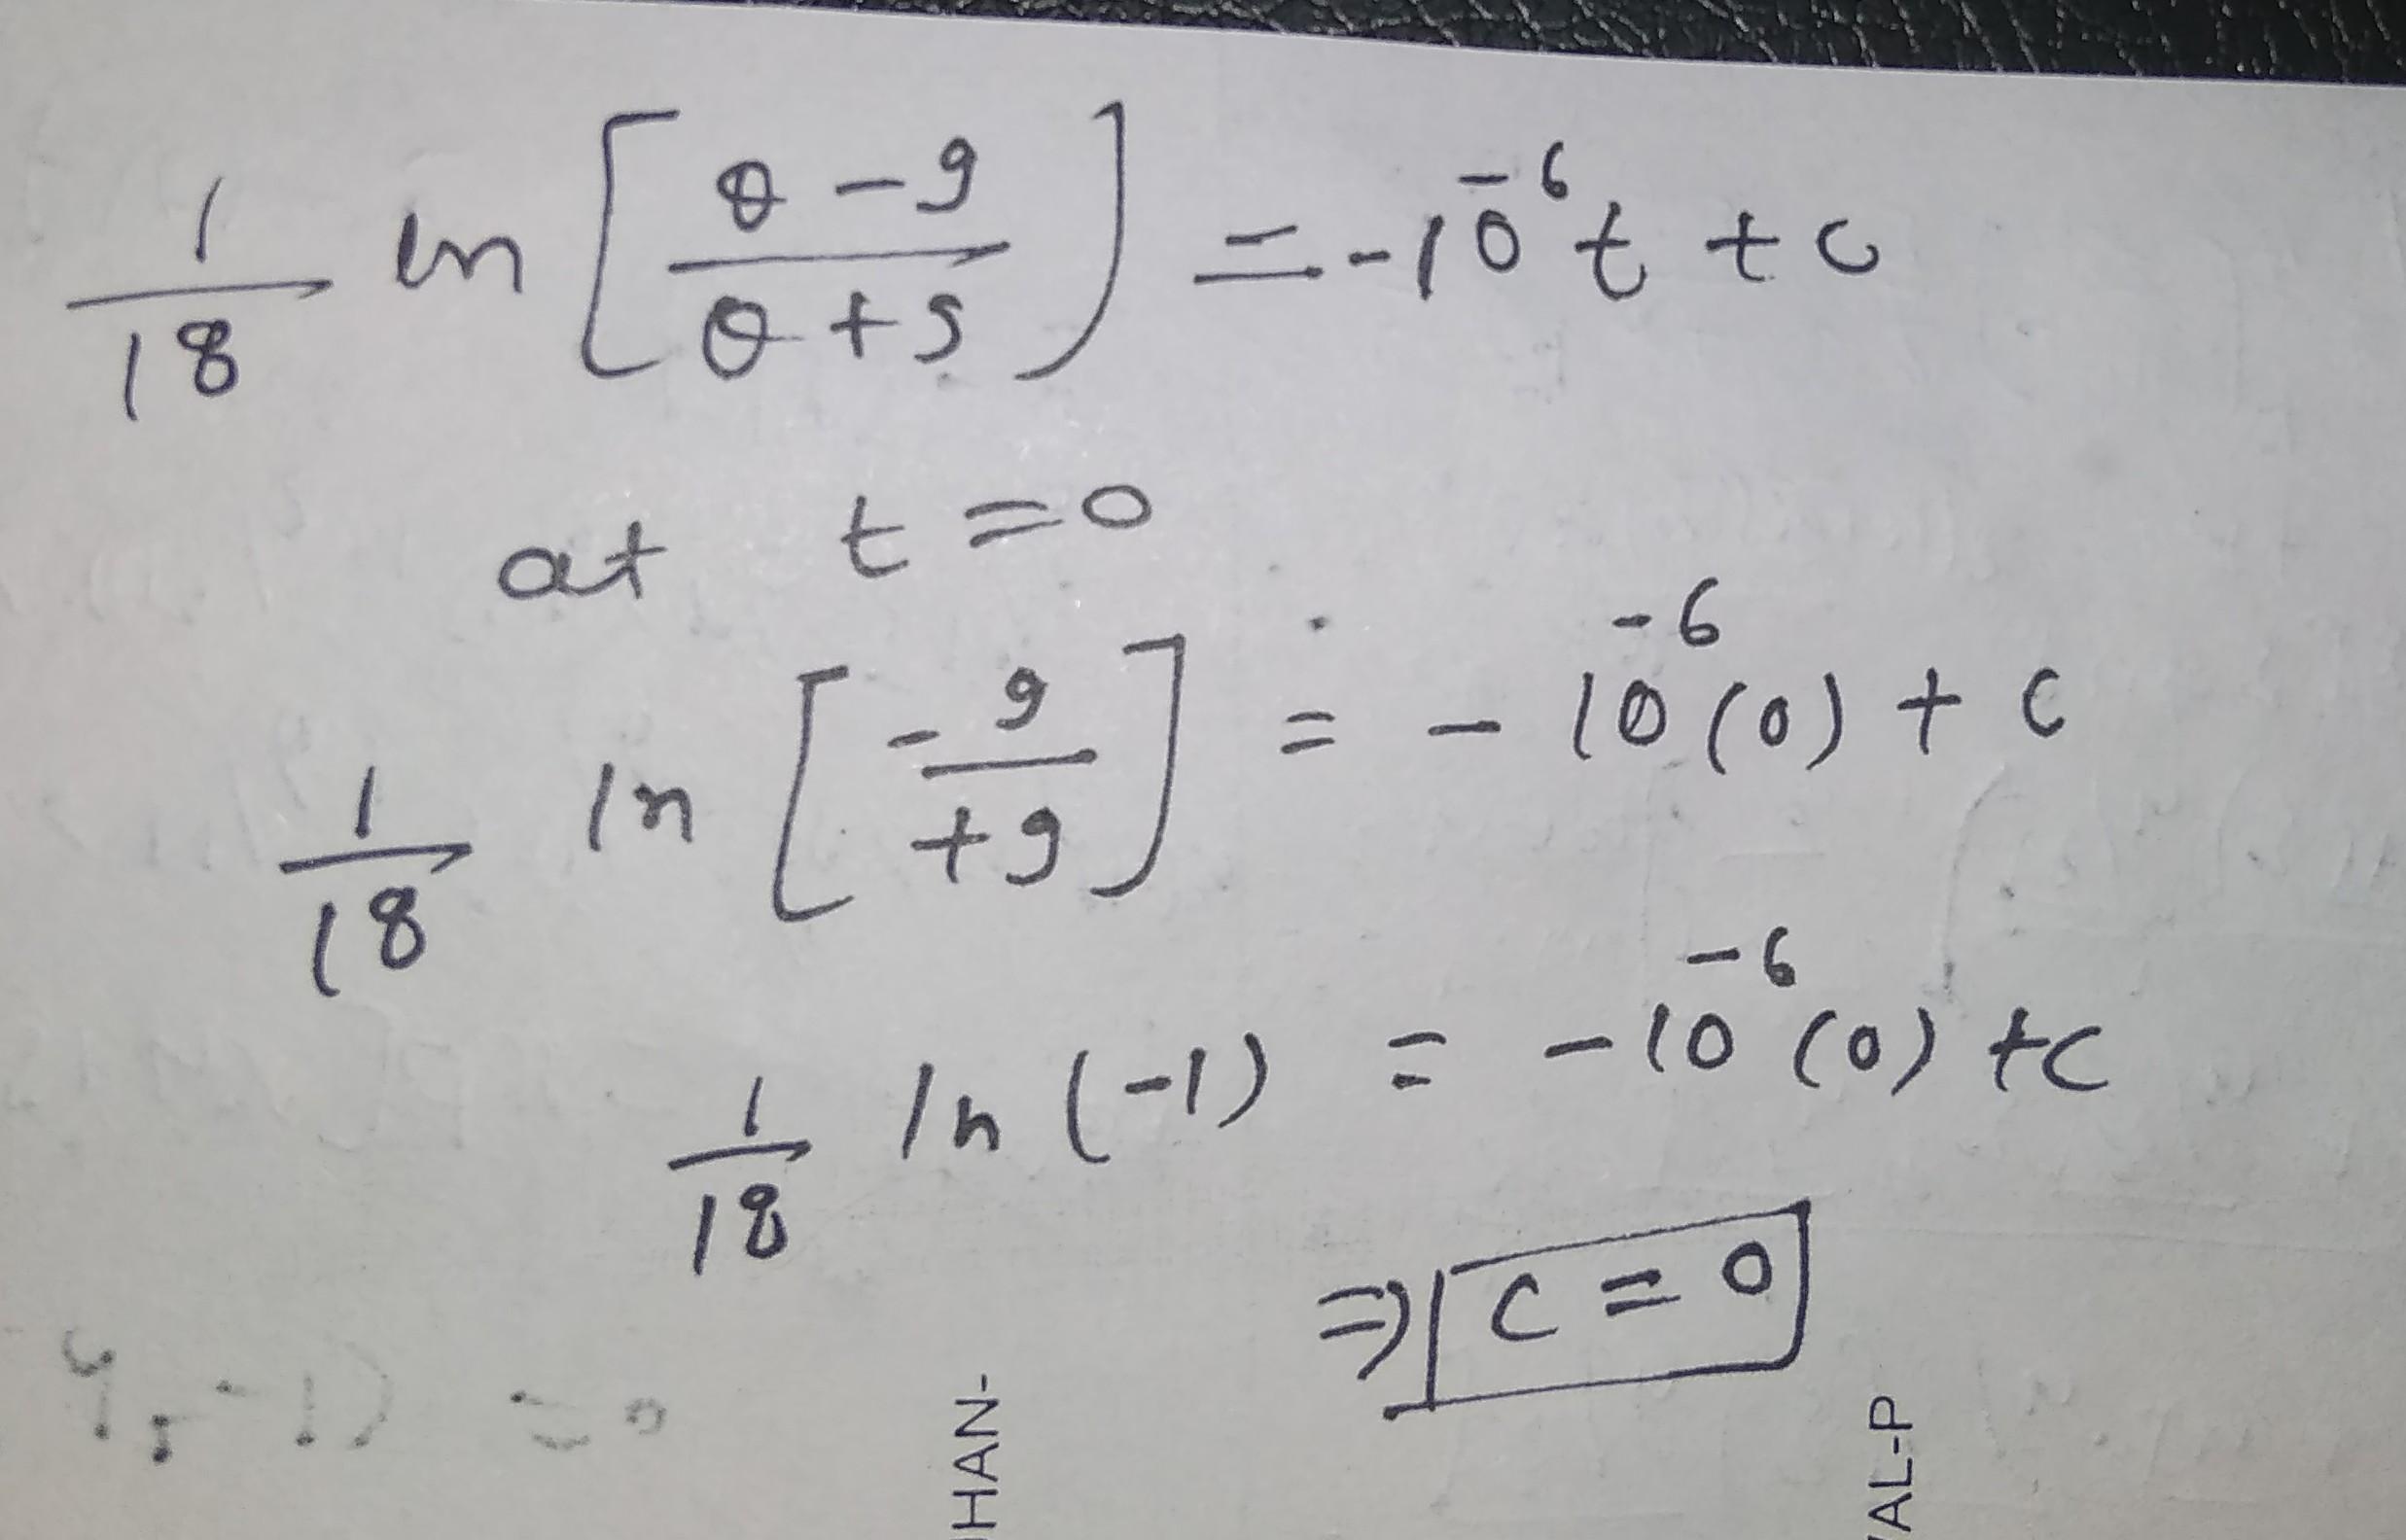 1/18 ln [θ-9 / θ+9] = -10⁻⁶t + c
at t = 0
1/18 ln [-9 / +9] = -10⁻⁶(0) + c
1/18 ln (-1) = -10⁻⁶(0) + c
⇒ c = 0
HAN-
AL-P